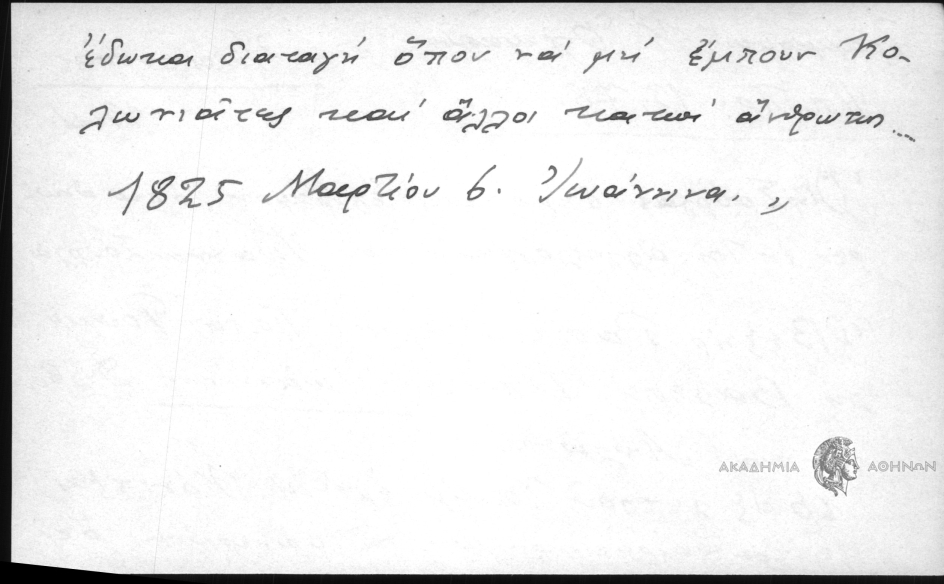 ἔδωκα διαταγή ὅπου νά μή ἔμπουν Κο-
λωνιᾶτες καί ἄλλοι κακοί ἄνθρωποι....
1825 Μαρτίου 6. Ἰωάννινα. „
ΑΚΑΔΗΜΙΑ ΑΘΗΝΩΝ